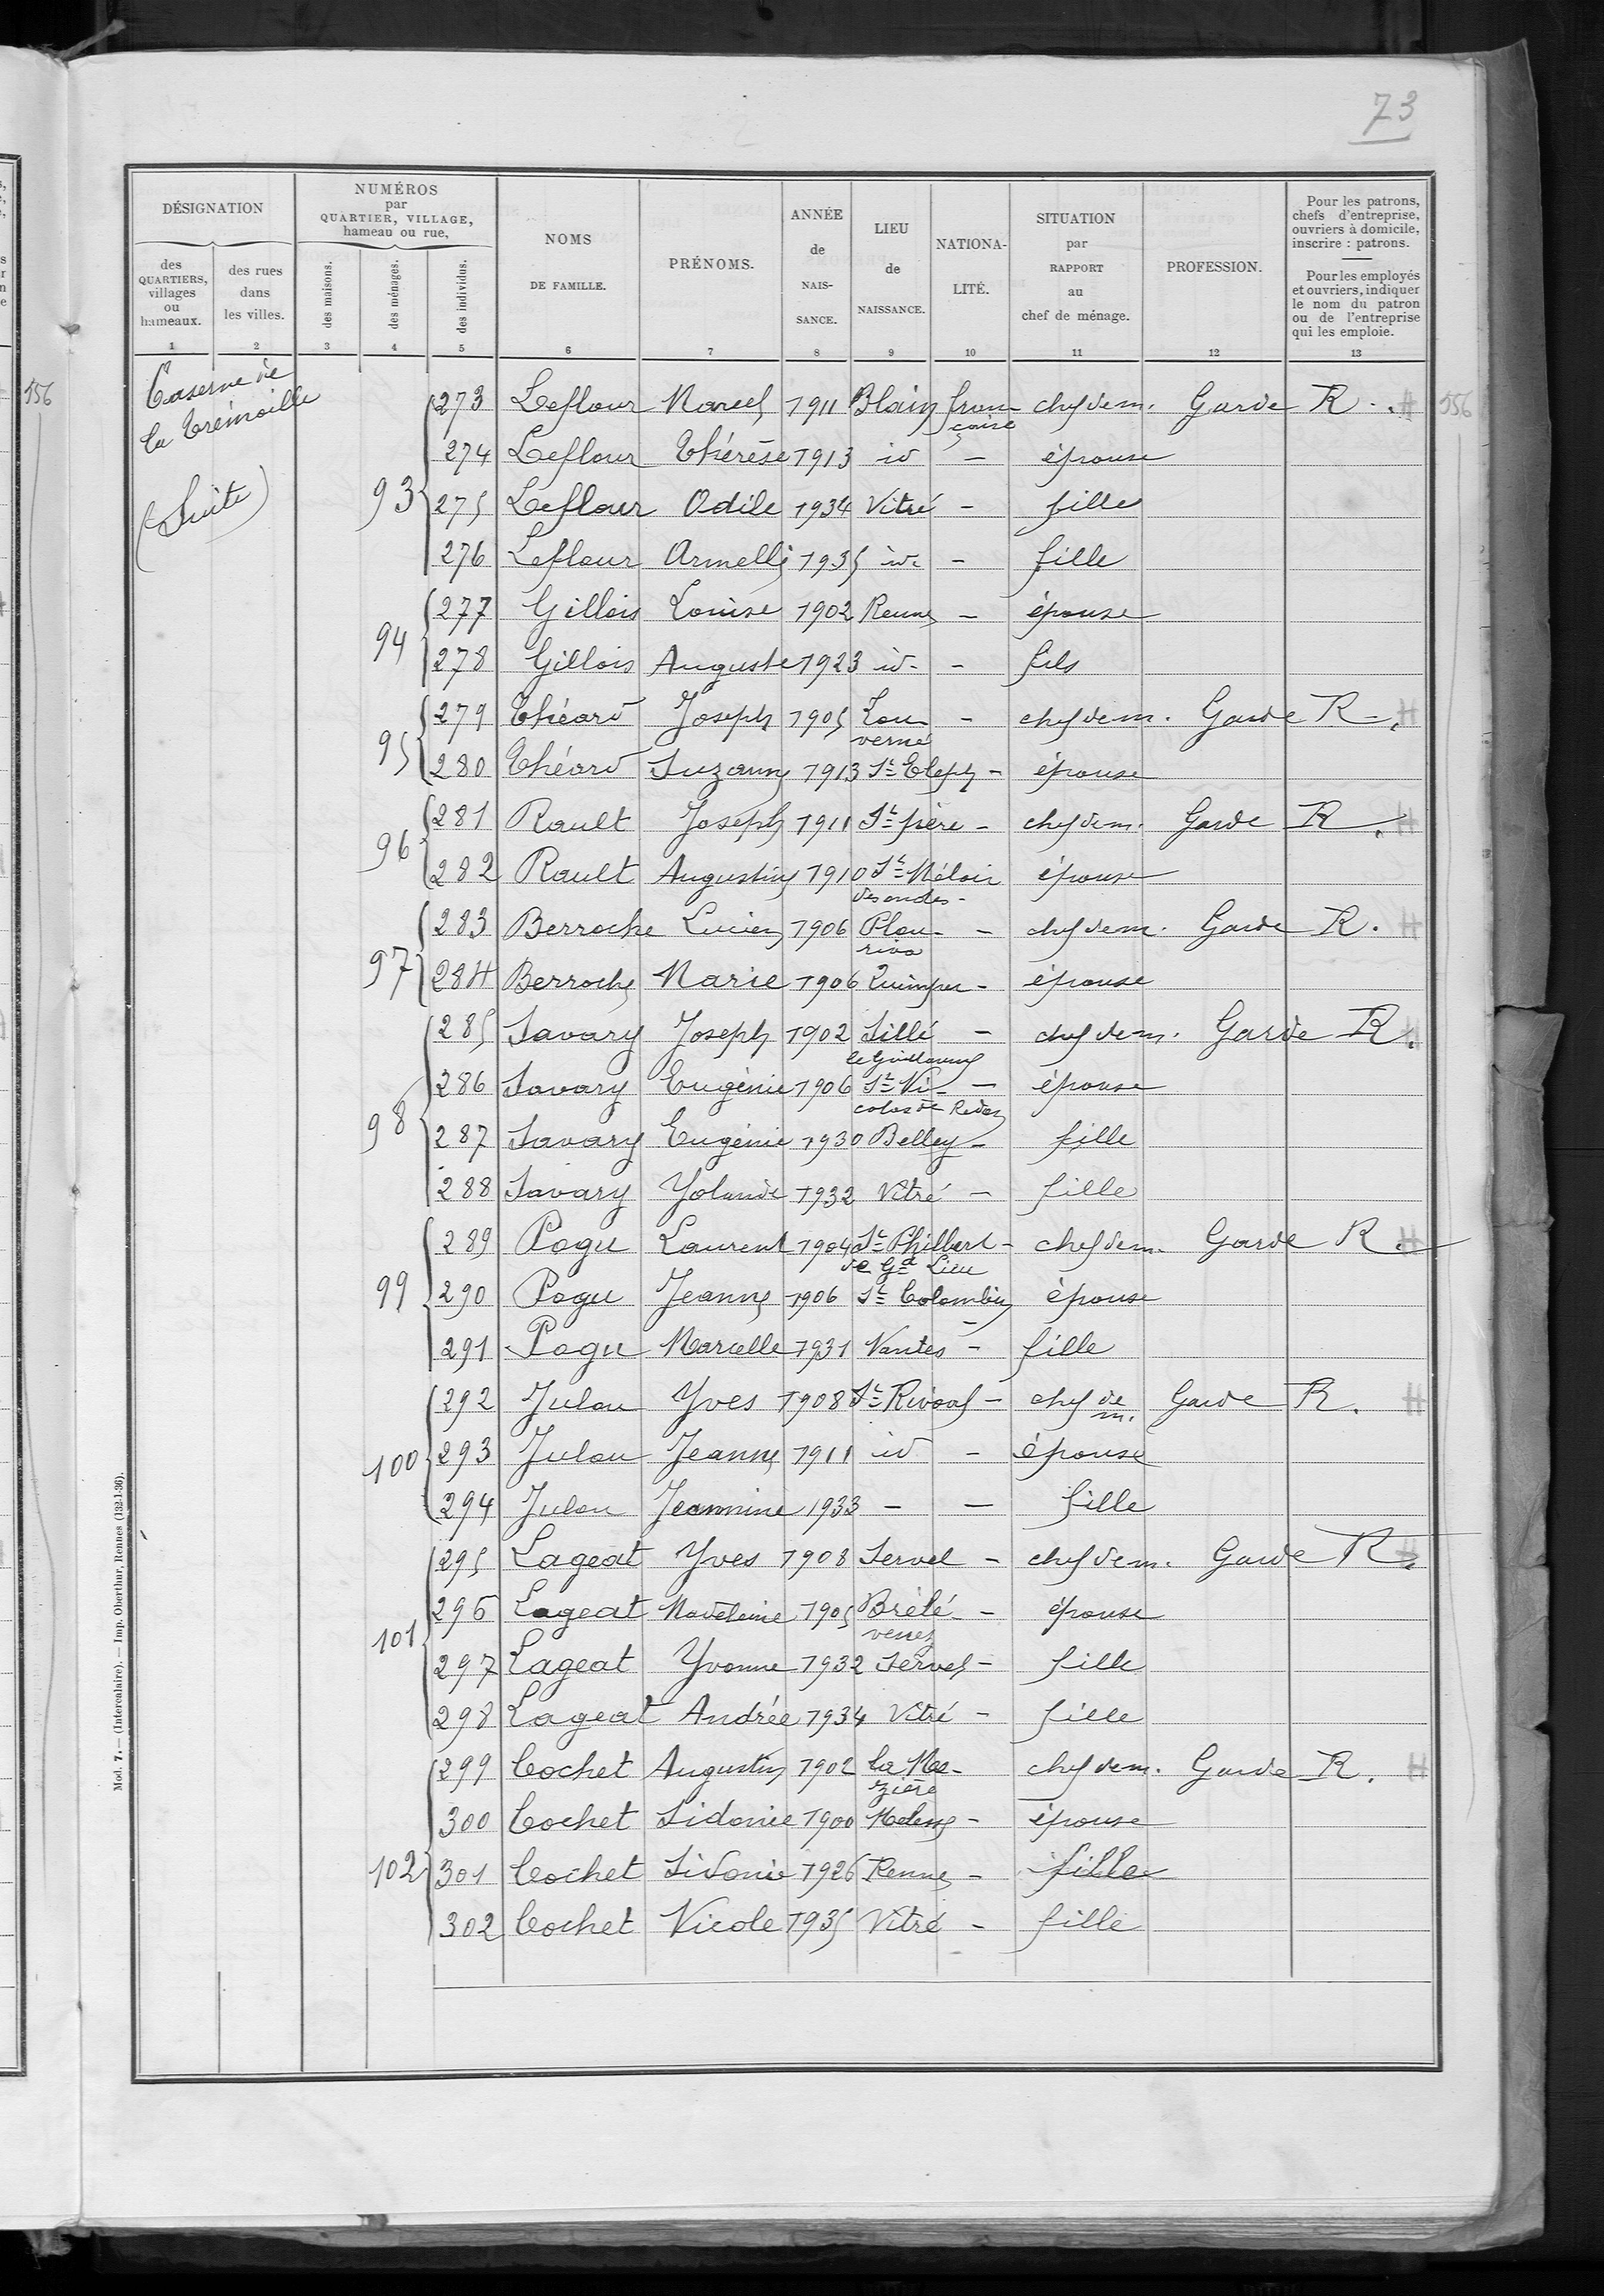 73
DÉSIGNATION
NUMÉROS
par
QUARTIER, VILLAGE,
hameau ou rue,
des
QUARTIERS,
villages
ou
hameaux.
des rues
dans
les villes.
des maisons.
des ménages.
des individus.
NOMS
DE FAMILLE.
PRÉNOMS.
ANNÉE
de
NAIS-
SANCE.
LIEU
de
NAISSANCE.
NATIONA-
LITÉ.
SITUATION
par
RAPPORT
au
chef de ménage.
PROFESSION.
Pour les patrons,
chefs d'entreprise,
ouvriers à domicile,
inscrire : patrons.
Pour les employés
et ouvriers, indiquer
le nom du patron
ou de l'entreprise
qui les emploie.
1 2 3 4 5 6 7 8 9 10 11 12 13
Caserne de
la Trémoille
(Suite)
556
556
273 Leflour Marcel 1911 Blain fran- chef de m. Garde R.
çaise
274 Leflour Thérèse 1913 id - épouse
93 275 Leflour Odile 1934 Vitré - fille
276 Leflour Armelle 1935 id. - fille
277 Gillois Louise 1902 Rennes - épouse
94
278 Gillois Auguste 1923 id. - fils
279 Théard Joseph 1905 Lou- - chef de m. Garde R.
verné
95
280 Théard Suzanne 1913 - épouse
281 Rault Joseph 1911 St père - chef de m. Garde R.
96
282 Rault Augustine 1910 St Méloir épouse
des ondes -
283 Berroche Lucien 1906 Plou- - chef de m. Garde R.
rivo
97
284 Berroche Marie 1906 Quimper - épouse
285 Savary Joseph 1902 Sillé - chef de m. Garde R.
le Guillaume
286 Savary Eugénie 1906 St Ni- - épouse
colas de Redon
98
287 Savary Eugénie 1930 Belley - fille
288 Savary Yolande 1932 Vitré - fille
289 Pogu Laurent 1904 St Philbert - chef de m. Garde R.
de Gd Lieu
99 290 Pogu Jeanne 1906 St Colombin - épouse
291 Pogu Marcelle 1931 Nantes - fille
292 Julou Yves 1908 St Rivoal - chef de Garde R.
m.
100 293 Julou Jeanne 1911 id - épouse
294 Julou Jeannine 1933 - - fille
295 Lageat Yves 1908 Servel - chef de m. Garde R.
296 Lageat Madeleine 1905 Brélé- - épouse
venez
101
297 Lageat Yvonne 1932 Servel - fille
298 Lageat Andrée 1934 Vitré - fille
299 Cochet Augustin 1902 La Me- chef de m. Garde R.
zière
300 Cochet Sidonie 1900 Melesse - épouse
102 301 Cochet Sidonie 1926 Rennes - fille
302 Cochet Nicole 1935 Vitré - fille
Mod. 7. — (Intercalaire). — Imp. Oberthur, Rennes (132-1-36).